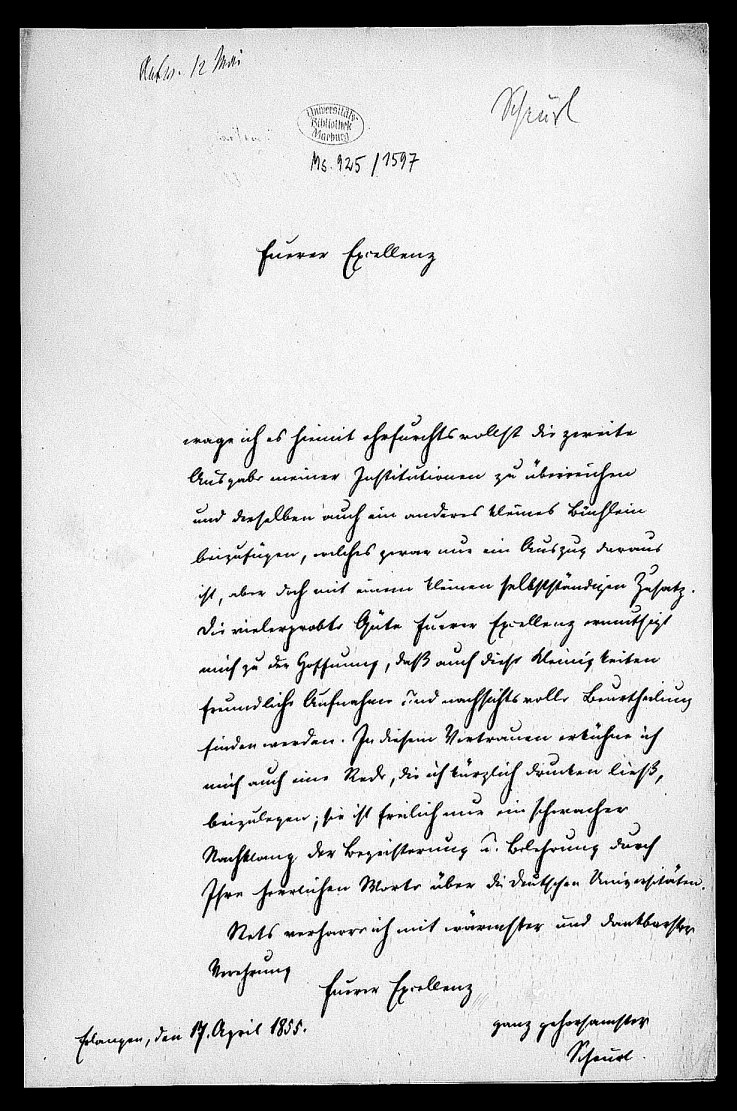 12 Mai
Scheurl
Universitäts-
Bibliothek
Marburg
Ms. 925/1597
Euerer Excellenz
wage ich es hiemit ehrfurchtsvollst die zweite
Ausgabe meiner Institutionen zu überreichen
und derselben auch ein anderes kleines Büchlein
beizufügen, welches zwar nur ein Auszug daraus
ist, aber doch mit einem kleinen selbstständigen Zusatz.
Die vielerprobte Güte Euerer Excellenz ermuthigt
mich zu der Hoffnung, daß auch diese Kleinigkeiten
freundliche Aufnahme und nachsichtsvolle Beurtheilung
finden werden. In diesem Vertrauen erkühne ich
mich auch eine Rede, die ich kürzlich drucken ließ,
beizulegen; sie ist freilich nur ein schwacher
Nachklang der Begeisterung u. Belehrung durch
Ihre herrlichen Worte über die deutschen Universitäten.
Stets verharre ich mit wärmster und dankbarster
Verehrung
Euerer Excellenz
ganz gehorsamster
Erlangen, den 17. April 1855.
Scheurl.